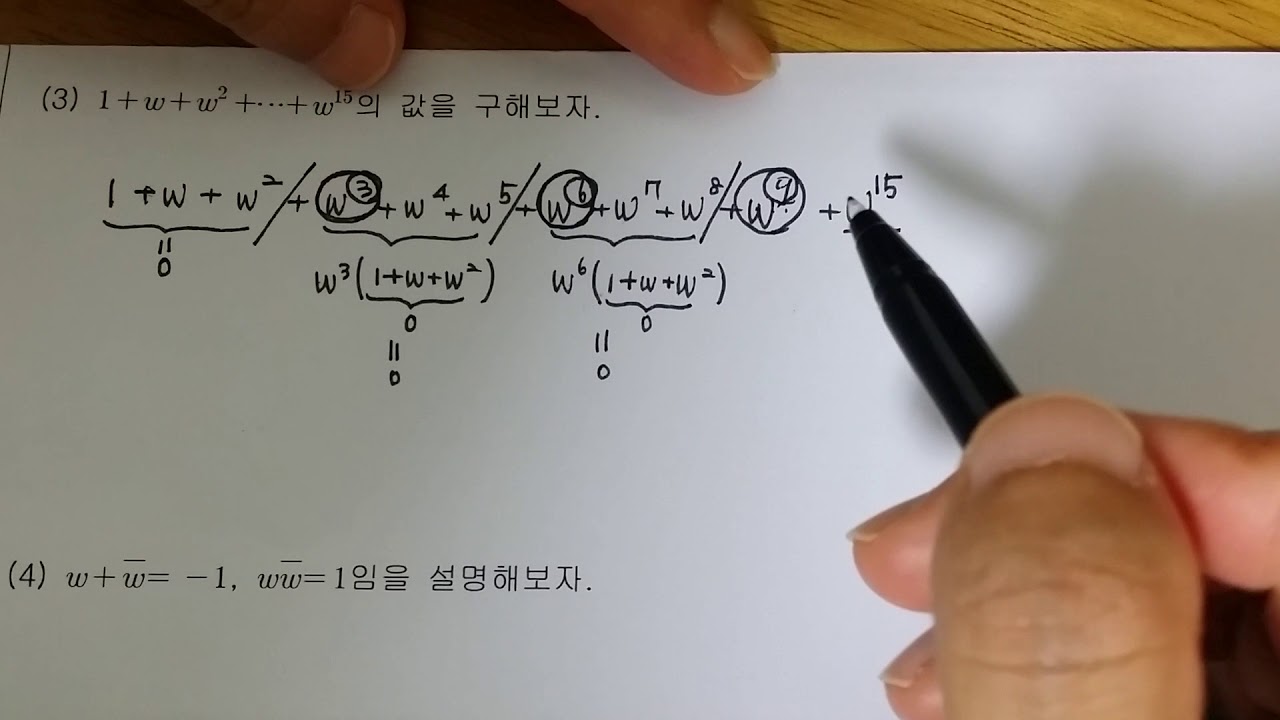 (3) 1+w+w²+⋯+w¹⁵의 값을 구해보자.
1+w+w²/+w³+w⁴+w⁵/+w⁶+w⁷+w⁸/+w⁹ +w¹⁵
= 0
w³(1+w+w²) w⁶(1+w+w²)
0 0
= =
0 0
(4) w+w̅= −1, ww̅=1임을 설명해보자.